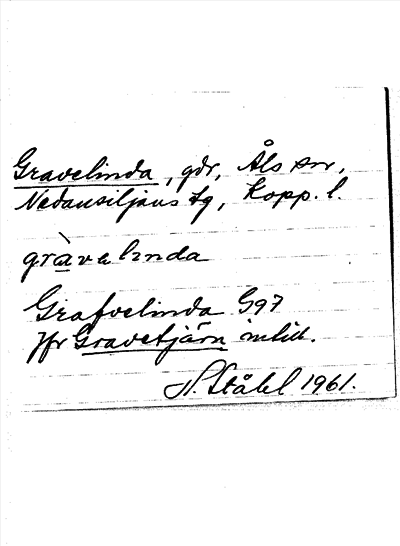 Gravelinda, gdr, Åls sn,
Nedansiljans tg, Kopp. l.
gràvelinda
Grafvelinda G97
Jfr Gravetjärn
N. Ståhl 1961.